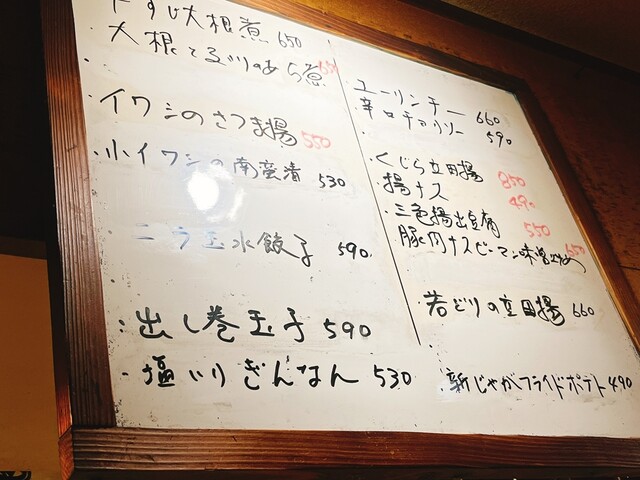 すじ大根煮 650
大根とぶりのあら煮 650
・イワシのさつま揚 550
・小イワシの南蛮漬 530
ニラ玉水餃子 590
・出し巻玉子 590
・塩いりぎんなん 530
・ユーリンチー 660
・辛口チョリソー 590
・くじら立田揚 850
・揚ナス 490
・三色揚出豆腐 550
・豚肉ナスピーマン味噌炒め 650
・若どりの立田揚 660
・新じゃがフライドポテト 490